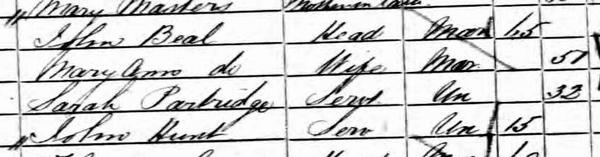 " Mary Masters Mother in Law
John Beal Head Mar 65
Mary Ann do Wife Mar 57
Sarah Partridge Serv Un 32
" John Hunt Serv Un 15